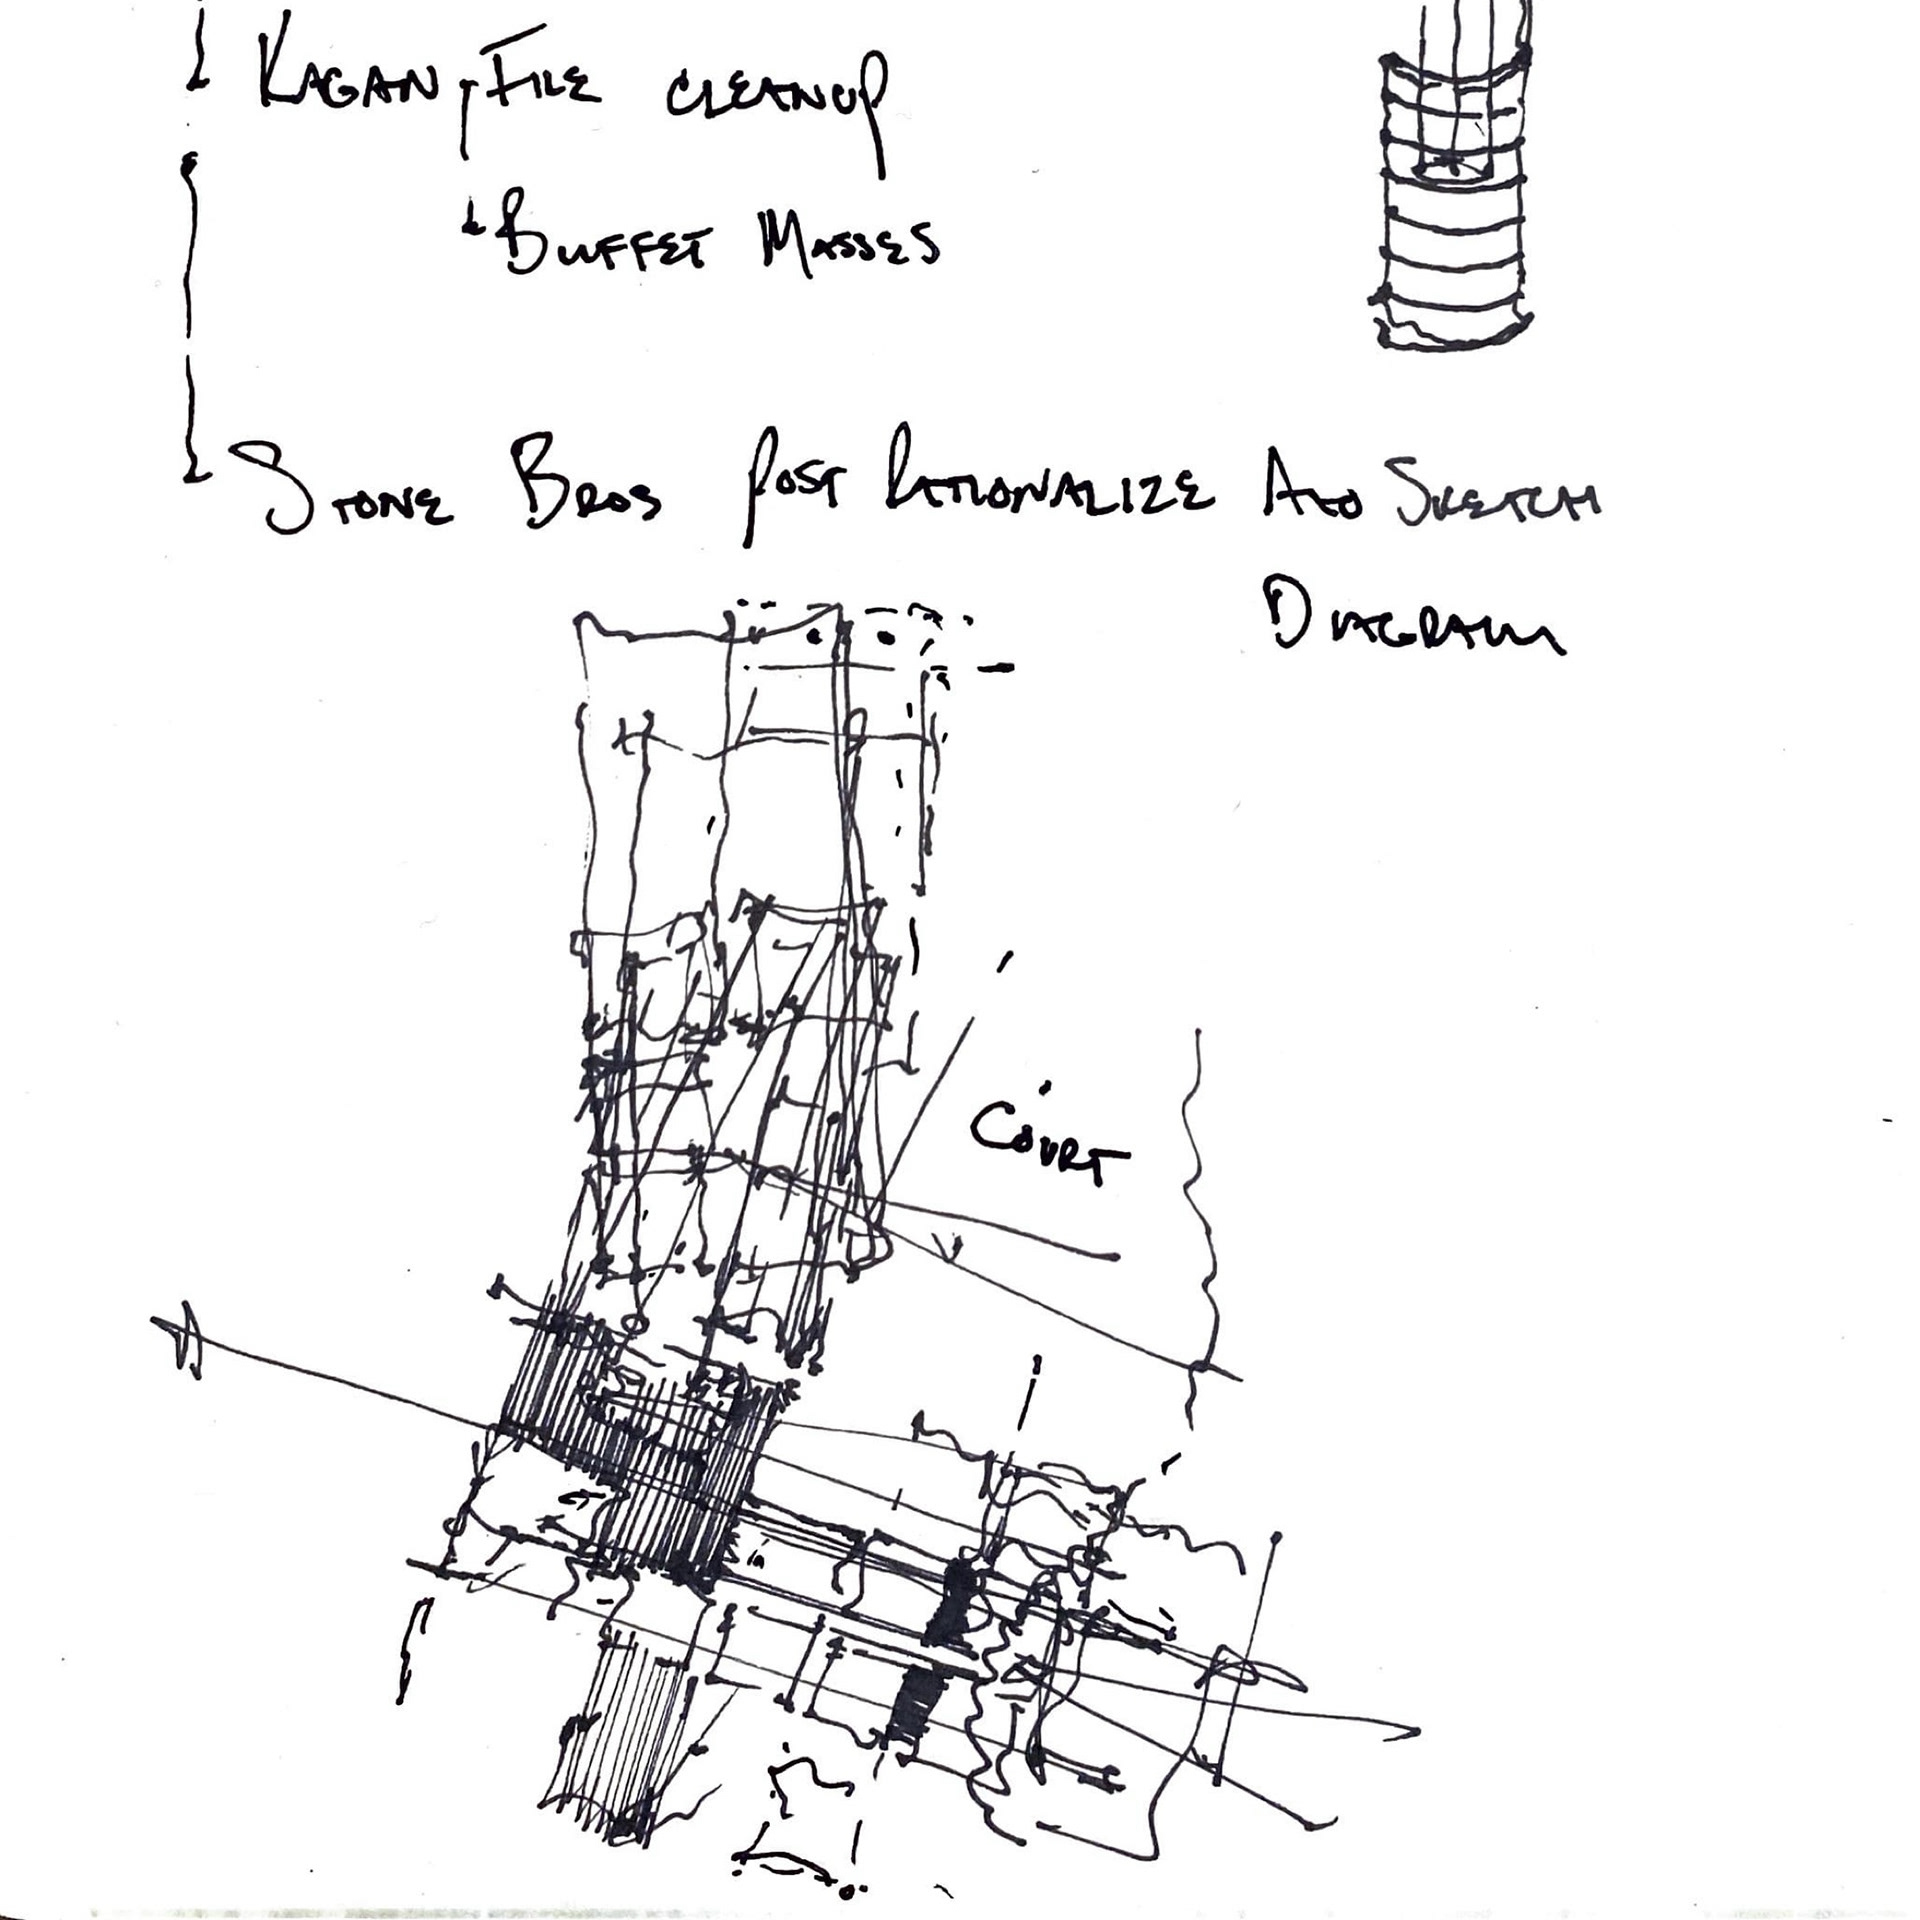 KAGAN, FILE CLEANUP
BUFFET MASSES
STONE BROS POST RATIONALIZE AND SKETCH
DIAGRAM
COURT